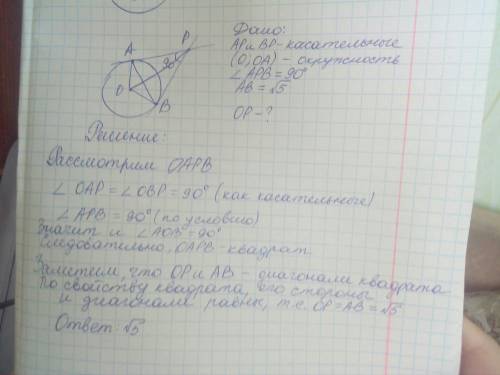 A
P
90°
O
B
Дано:
AP и BP - касательные
(O; OA) - окружность
∠APB = 90°
AB = √5
OP - ?
Решение:
Рассмотрим OAPB
∠OAP = ∠OBP = 90° (как касательные)
∠APB = 90° (по условию)
Значит и ∠AOB = 90°
Следовательно, OAPB - квадрат
Заметим, что OP и AB - диагонали квадрата
По свойству квадрата, его стороны
и диагонали равны, т.е. OP = AB = √5
Ответ: √5